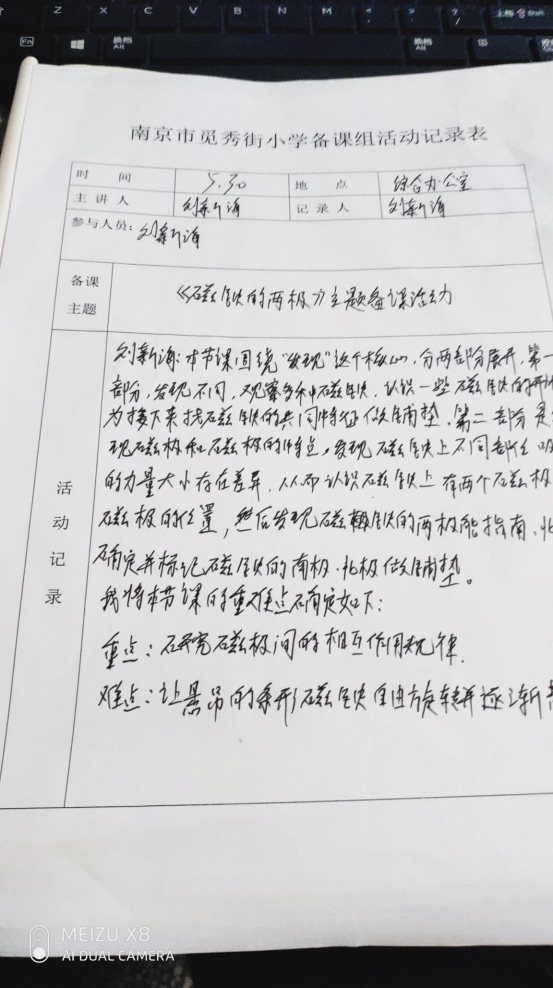 南京市觅秀街小学备课组活动记录表
时间 5.30 地点 综合办公室
主讲人 刘新海 记录人 刘新海
参与人员：刘新海
备课主题 《磁铁的两极》主题备课活动
活动记录
刘新海：本节课围绕“发现”这个核心，分两部分展开，第一
部分，发现不同，观察多种磁铁，认识一些磁铁的形状
为接下来找磁铁的共同特征做铺垫．第二部分是
现磁极和磁极的特点，发现磁铁上不同部位吸
的力量大小存在差异，从而认识磁铁上有两个磁极
磁极的位置，然后发现磁铁的两极能指南、北
确定并标记磁铁的南极、北极做铺垫。
我将本节课的重难点确定如下：
重点：研究磁极间的相互作用规律．
难点：让悬吊的条形磁铁自由旋转并逐渐
MEIZU X8
AI DUAL CAMERA